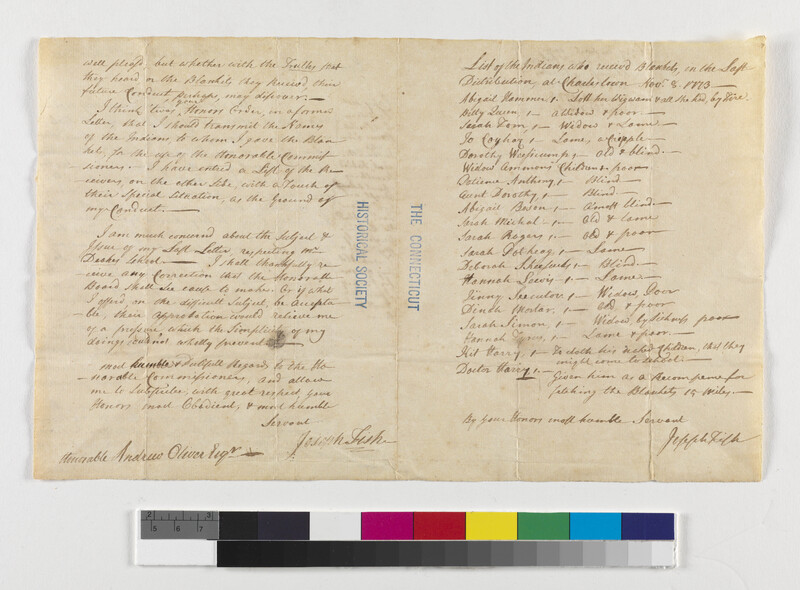 well pleased, but whether with the Truths that
they heard or the Blankets they Received, their
future Conduct perhaps, may discover.
I think twas your Honors Order, in a former
Letter, that I should transmit the Names
of the Indians, to whom I gave the Blan-
kets, for the use of the Honorable Commis-
sioners. I have entred a List of the Re-
ceivers on the other Side, with a Touch of
their Special Situation, as the Ground of
my Conduct.
I am much concernd about the Subject &
Issue of my Last Letter, respecting Mr
School. I shall thankfully re-
ceive any Correction that the Honorable
Board shall see cause to make. Or if what
I offerd, on the difficult Subject, be accepta-
ble, their approbation would relieve me
of a pressure, which the Simplicity of my
doings wholly prevent
most humble & Dutifull Regards to the Ho-
norable Commissioners, and allow
me to Subscribe, with great respect, your
Honors most Obedient, & most humble
Servant
Joseph Fish
Honorable Andrew Oliver Esqr
HISTORICAL SOCIETY
THE CONNECTICUT
List of the Indians who received Blankets, in the Last
Distribution, at Charlestown Novr 8. 1773
Abigail Hammer 1, Lost her Wigwam & all she had, by Fire.
Betty Queen, 1 a Widow & poor
Sarah Tom, 1 Widow & Lame
Jo Cayhoy 1 Lame, a Cripple
Dorothy 1 Old & blind.
Widow Ammons Children & poor
Patience Anthony, 1 Blind
Aunt Dorothy, 1 Blind
Abigail 1 Almost blind.
Sarah Michal, 1 Old & lame
Sarah Rogers, 1 Old & poor
Sarah 1 Lame
Deborah 1 Blind.
Hannah Lewis, 1 Lame.
Jenny 1 Widow, Poor
Dinah 1 Old & poor
Sarah Simon, 1 Widow, by Sickness poor
Hannah 1 Lame & poor.
Kit Harry, 1 To cloth his Children, that they
might come to School.
Doctor Harry 1. Given him as a Recompense for
fetching the Blankets 15 Miles.
By your Honors most humble Servant
Joseph Fish
2 3
5 6 7